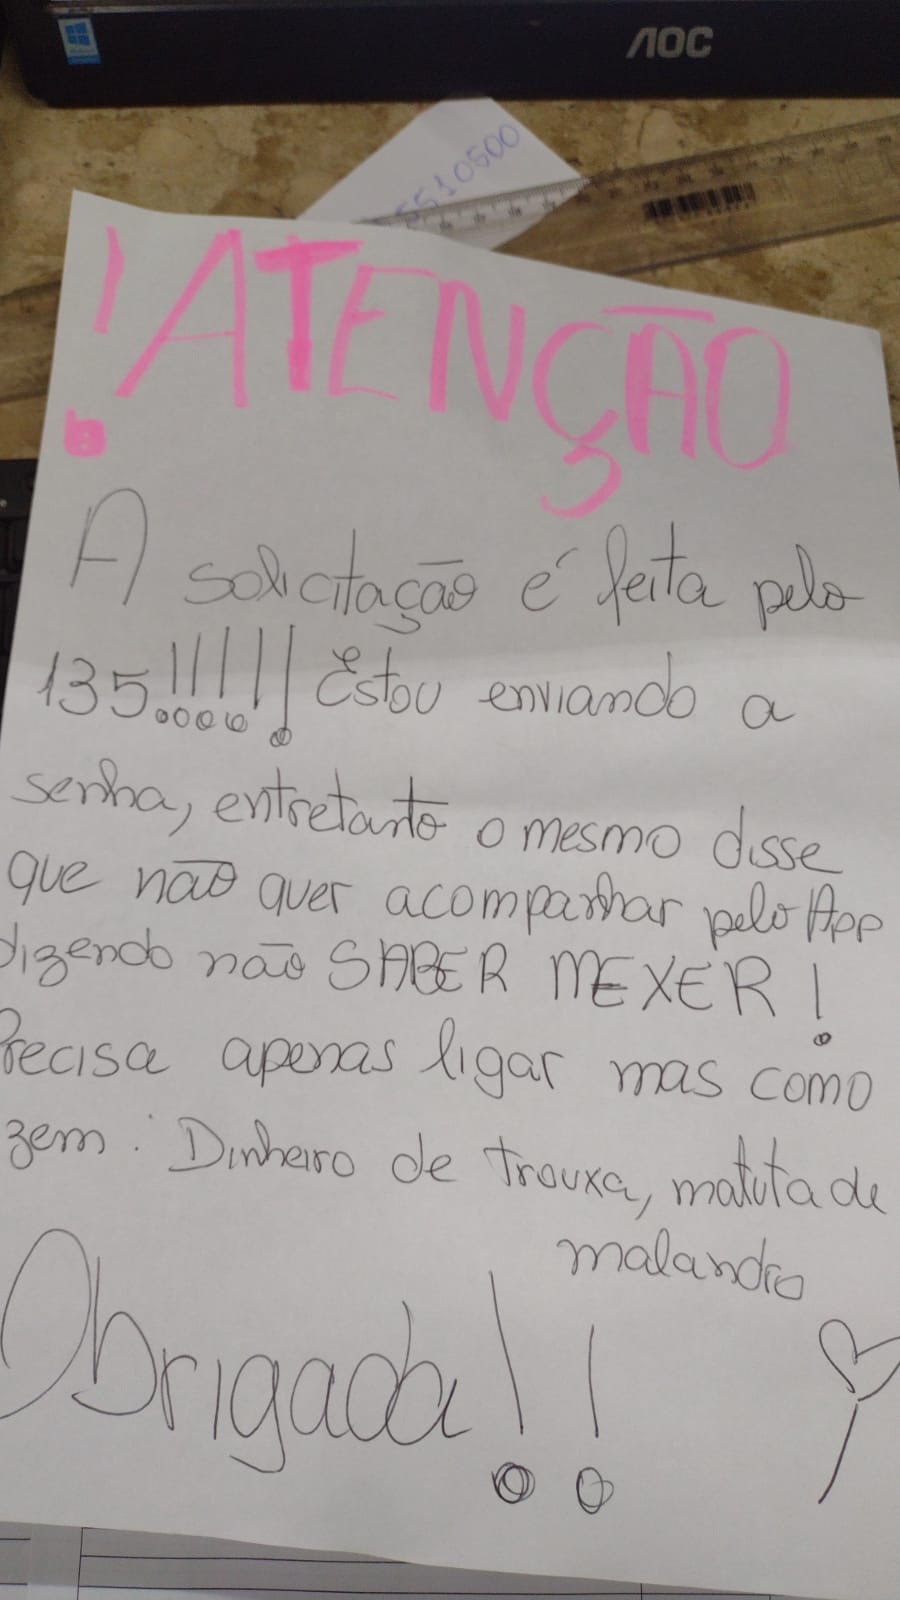 AOC
5510500
! ATENÇÃO
A solicitação é feita pelo
135!!!!!! Estou enviando a
senha, entretanto o mesmo disse
que não quer acompanhar pelo App
dizendo não SABER MEXER!
Precisa apenas ligar mas como
zem: Dinheiro de trouxa, matuta de
malandro
Obrigada!!